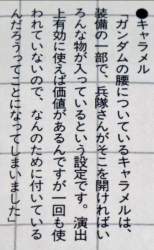 ●キャラメル
　ガンダムの腰についているキャラメルは、
装備の一部で、兵隊さんがそこを開ければい
ろんな物が入っているという設定です。演出
上有効に使えば価値があるんですが一回も使
われていないので、なんのために付いている
んだろうってことになってしまいました。